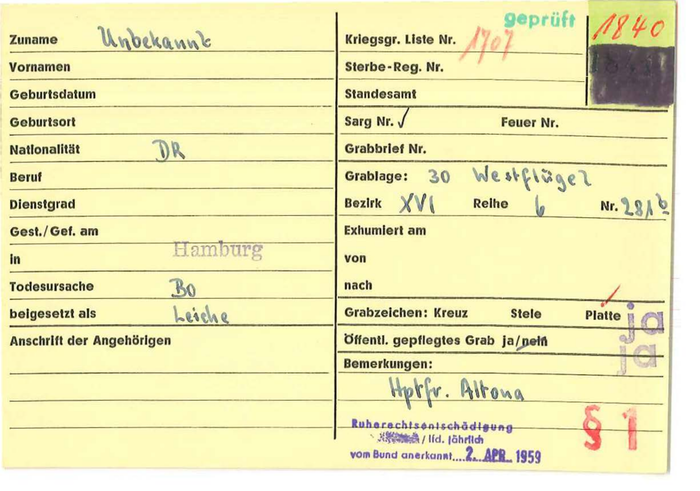 geprüft
1840
Zuname Unbekannt
Kriegsgr. Liste Nr. 1707
Vornamen
Sterbe-Reg. Nr.
Geburtsdatum
Standesamt
Geburtsort
Sarg Nr. Feuer Nr.
Nationalität DR
Grabbrief Nr.
Beruf
Grablage: 30 Westflügel
Dienstgrad
Bezirk XVI Reihe 6 Nr. 281b
Gest./Gef. am
Exhumiert am
in Hamburg
von
Todesursache Bo
nach
beigesetzt als Leiche
Grabzeichen: Kreuz Stele Platte ja
Anschrift der Angehörigen
Öffentl. gepflegtes Grab ja/nein ja
Bemerkungen:
Hptfr. Altona
Ruherechtsentschädigung
/ lfd. jährlich
vom Bund anerkannt 2. APR. 1959
§ 1